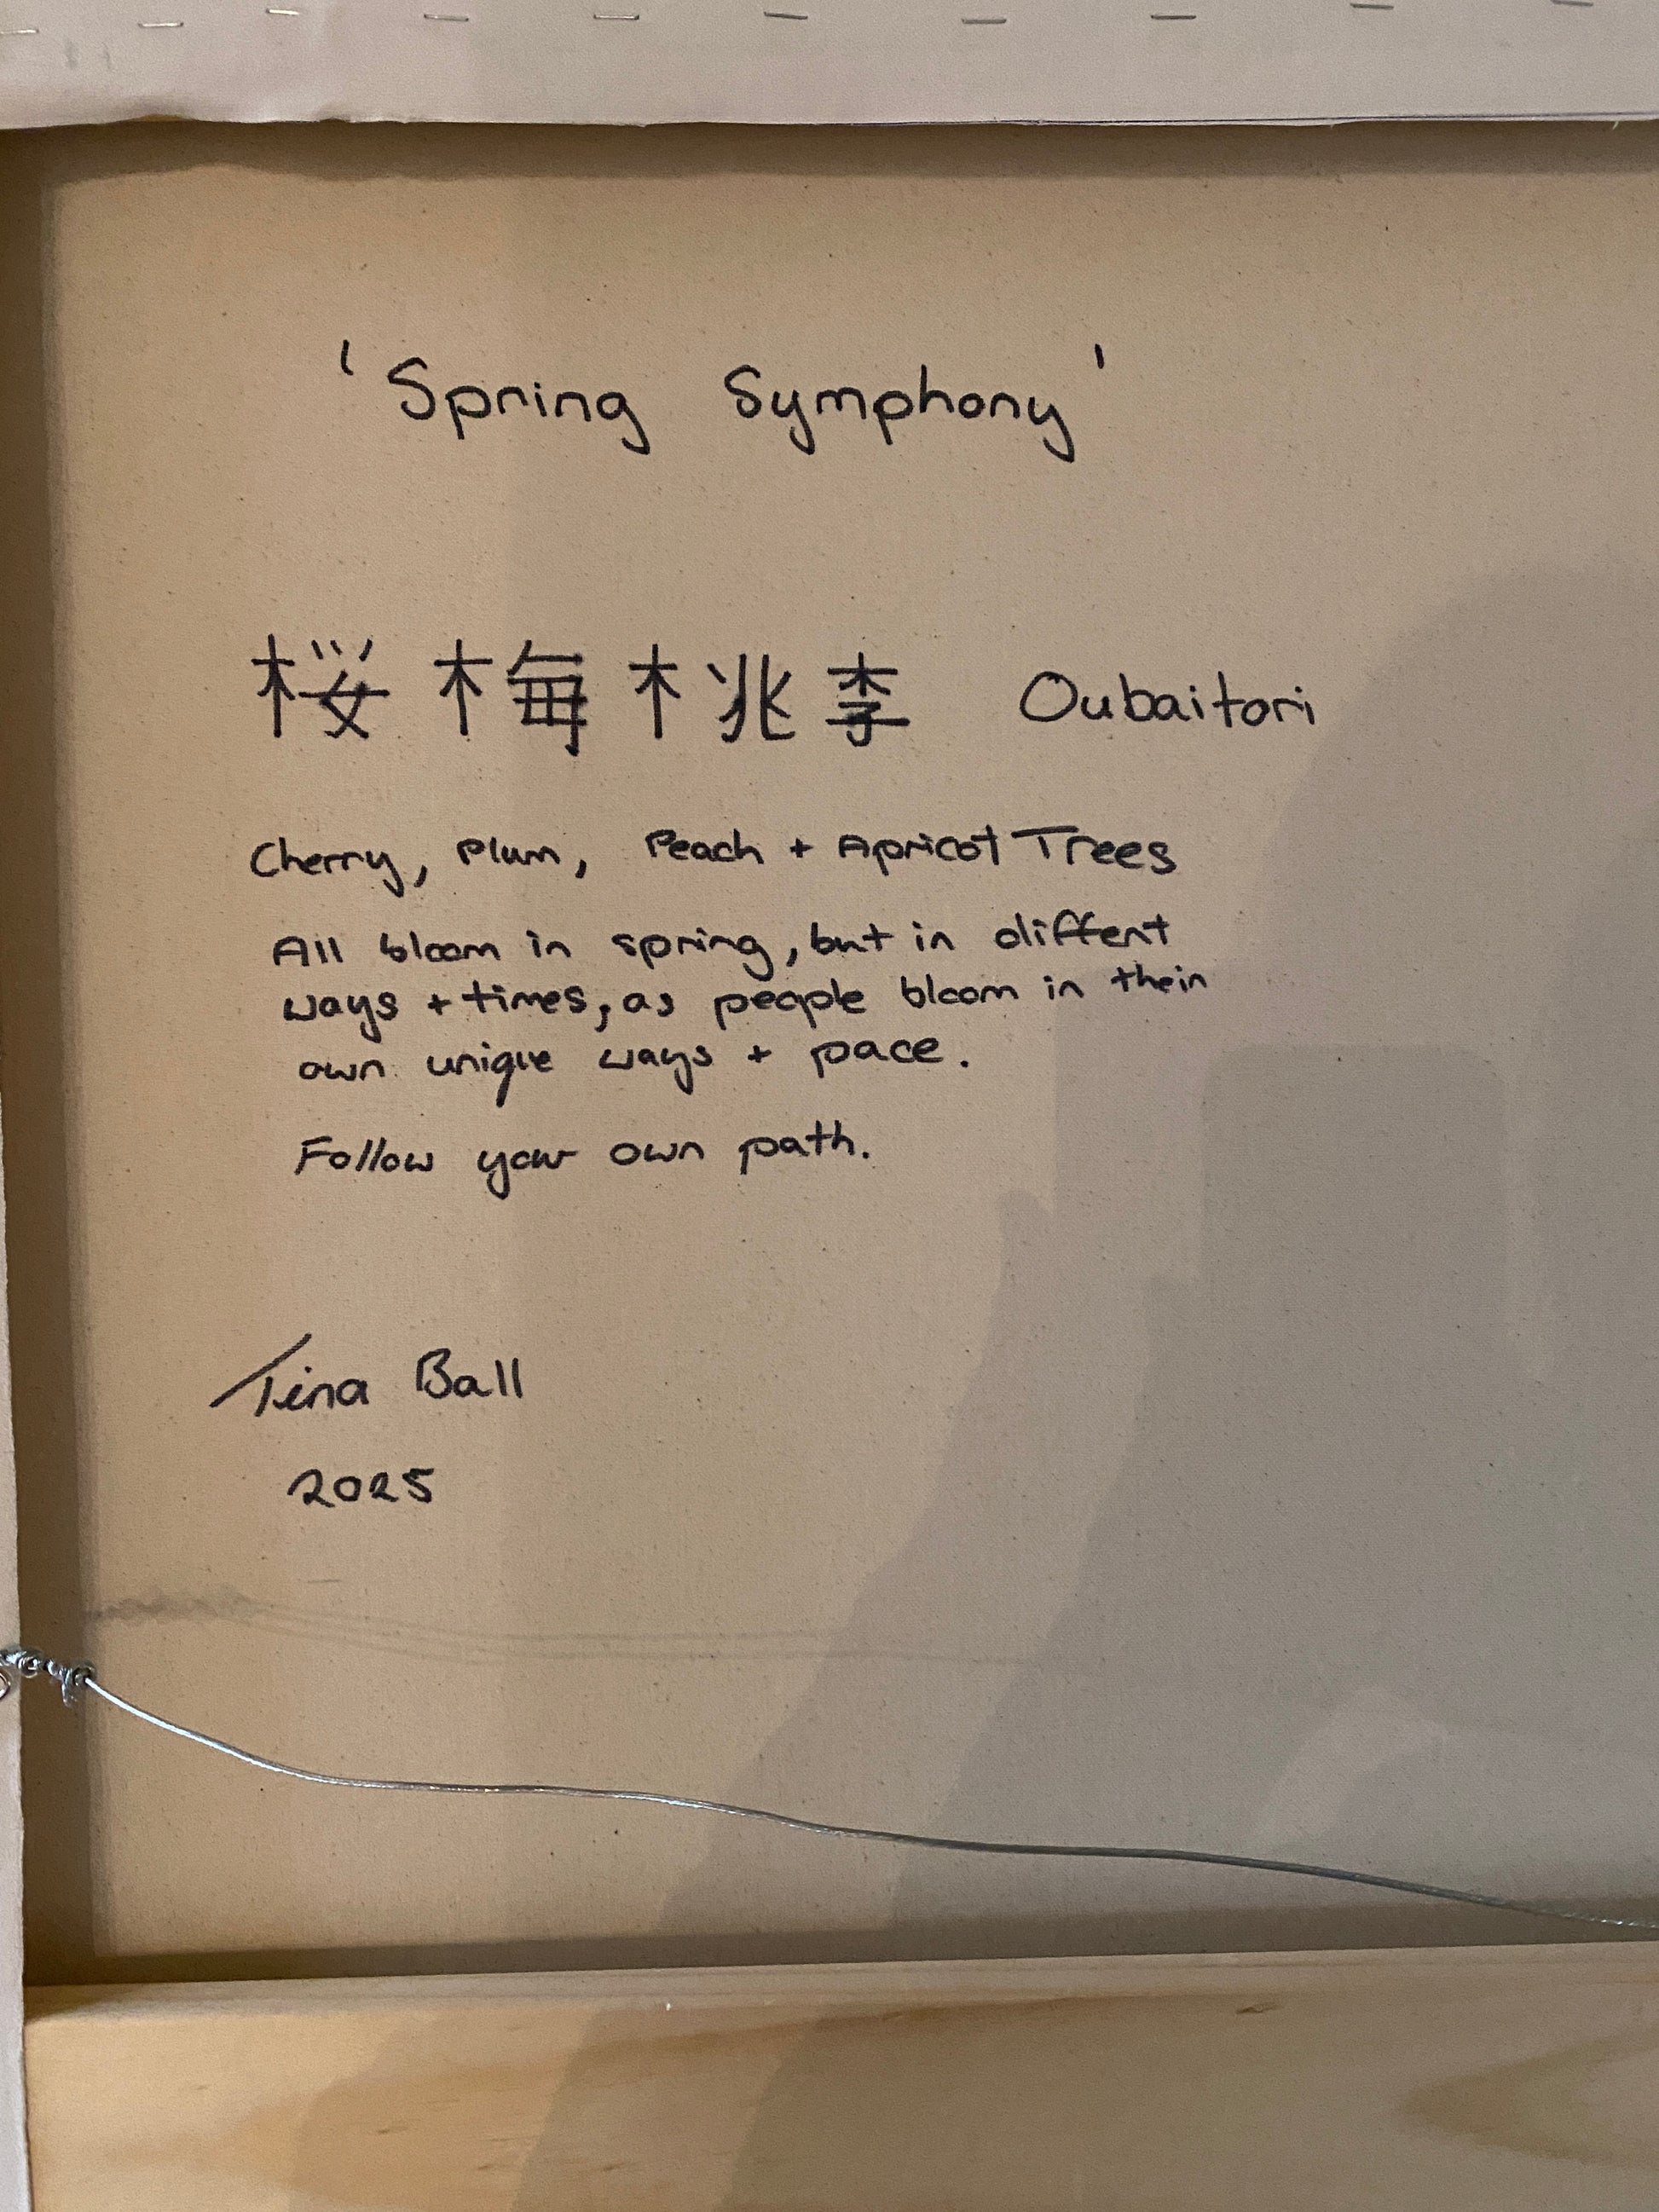 'Spring Symphony'
桜梅桃李 Oubaitori
Cherry, Plum, Peach + Apricot Trees
All bloom in spring, but in diffent
ways + times, as people bloom in their
own unique ways + pace.
Follow your own path.
Tina Ball
2025